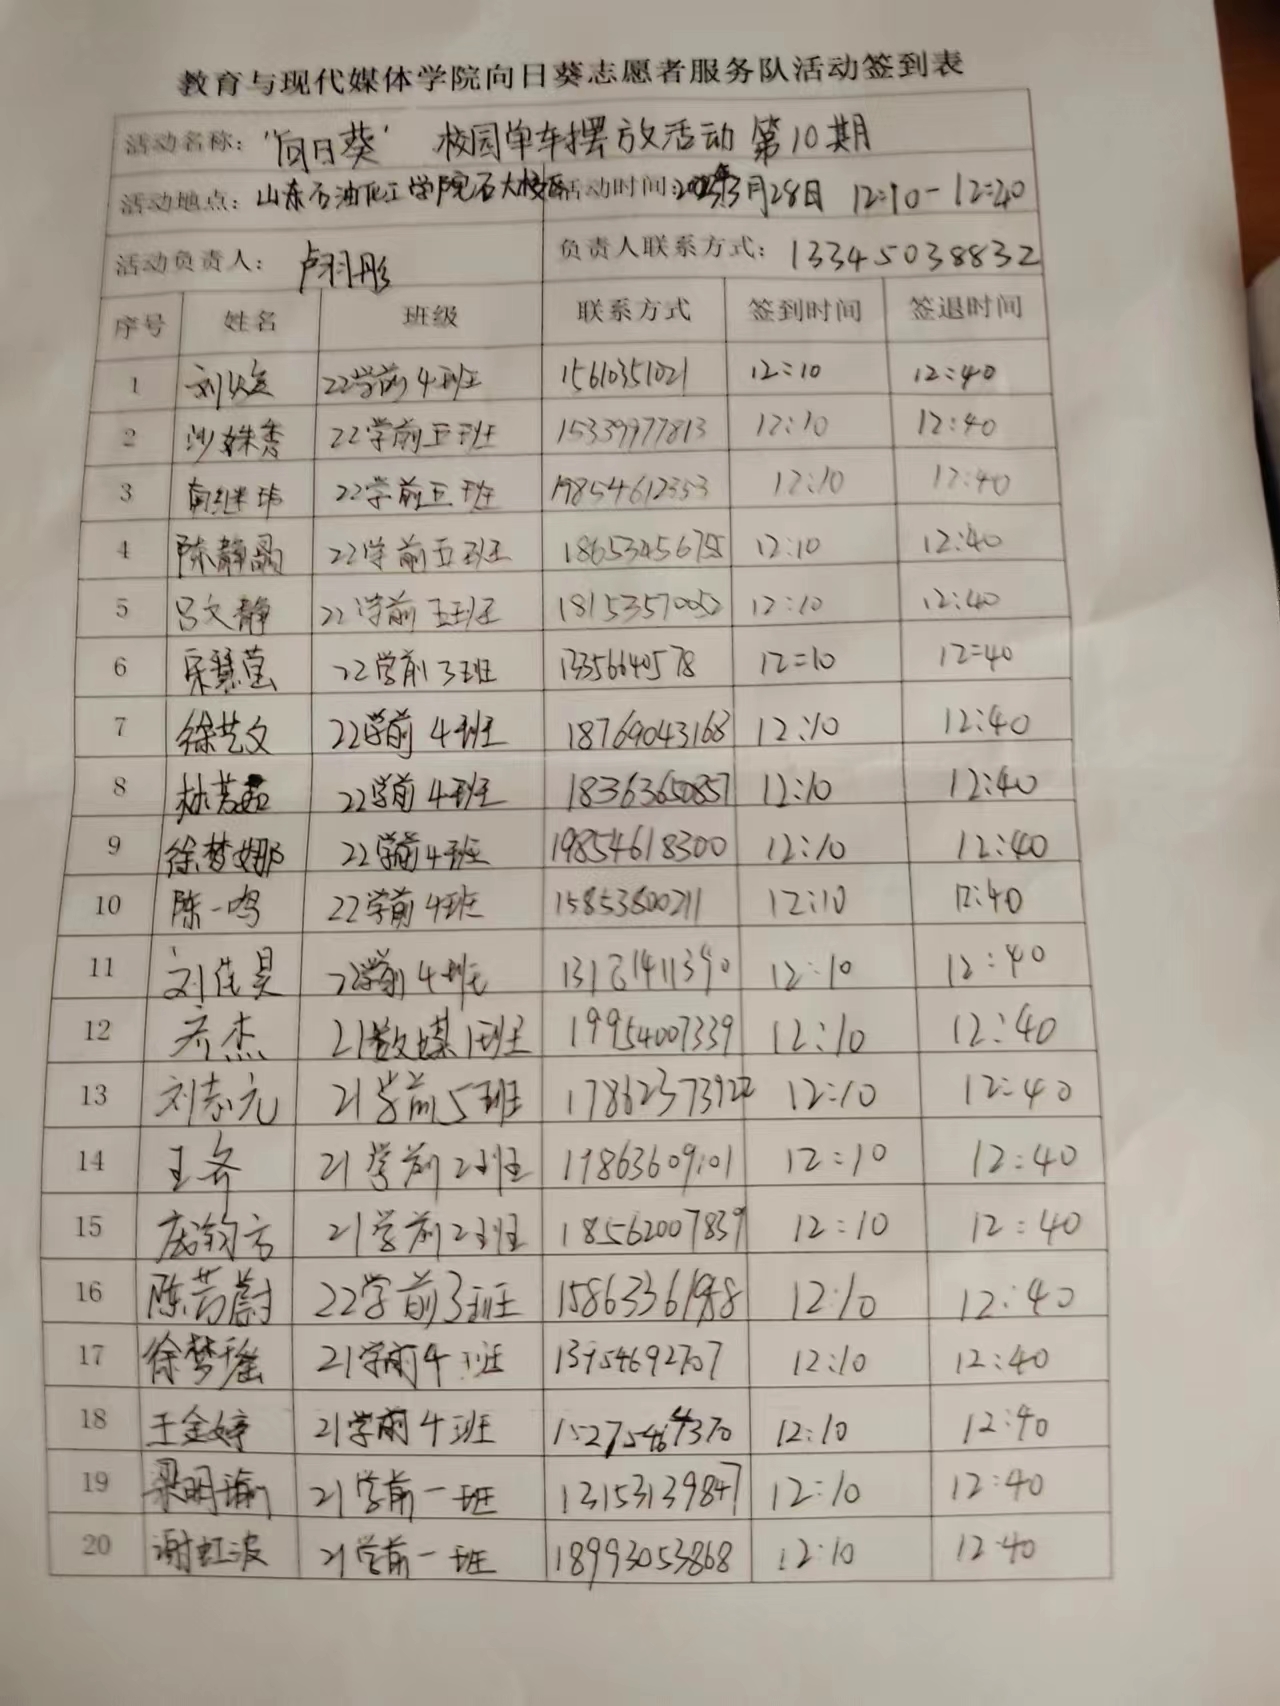 教育与现代媒体学院向日葵志愿者服务队活动签到表
活动名称："向日葵" 校园单车摆放活动 第10期
活动地点：山东石油化工学院石大校区 活动时间：3月28日 12:10-12:40
活动负责人：卢羽彤 负责人联系方式：13345038832
序号 姓名 班级 联系方式 签到时间 签退时间
1 22学前4班 15610351021 12:10 12:40
2 沙姝秀 22学前五班 15339977813 12:10 12:40
3 22学前五班 19854612353 12:10 12:40
4 陈静晶 22学前五班 12:10 12:40
5 吕文静 22学前五班 18153570052 12:10 12:40
6 宋慧莹 22学前3班 12:10 12:40
7 徐艺文 22学前4班 18769043168 12:10 12:40
8 22学前4班 18363650857 12:10 12:40
9 徐梦娜 22学前4班 19854618300 12:10 12:40
10 陈一鸣 22学前4班 15853600211 12:10 12:40
11 刘佳昊 22学前4班 12:10 12:40
12 齐杰 21数媒1班 19954007339 12:10 12:40
13 刘志元 21学前5班 12:10 12:40
14 21学前2班 19863609101 12:10 12:40
15 21学前2班 18562007839 12:10 12:40
16 陈芳蔚 22学前3班 12:10 12:40
17 徐梦瑶 21学前4班 13954692707 12:10 12:40
18 王金婷 21学前4班 15275464370 12:10 12:40
19 梁明瑜 21学前一班 13153139847 12:10 12:40
20 谢虹波 21学前一班 18993053868 12:10 12:40